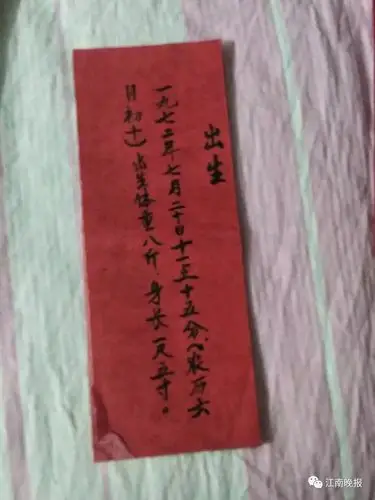 出生
一九七二年七月二十日十一点十五分、(农历六
月初十)出生体重八斤.身长一尺五寸。
江南晚报